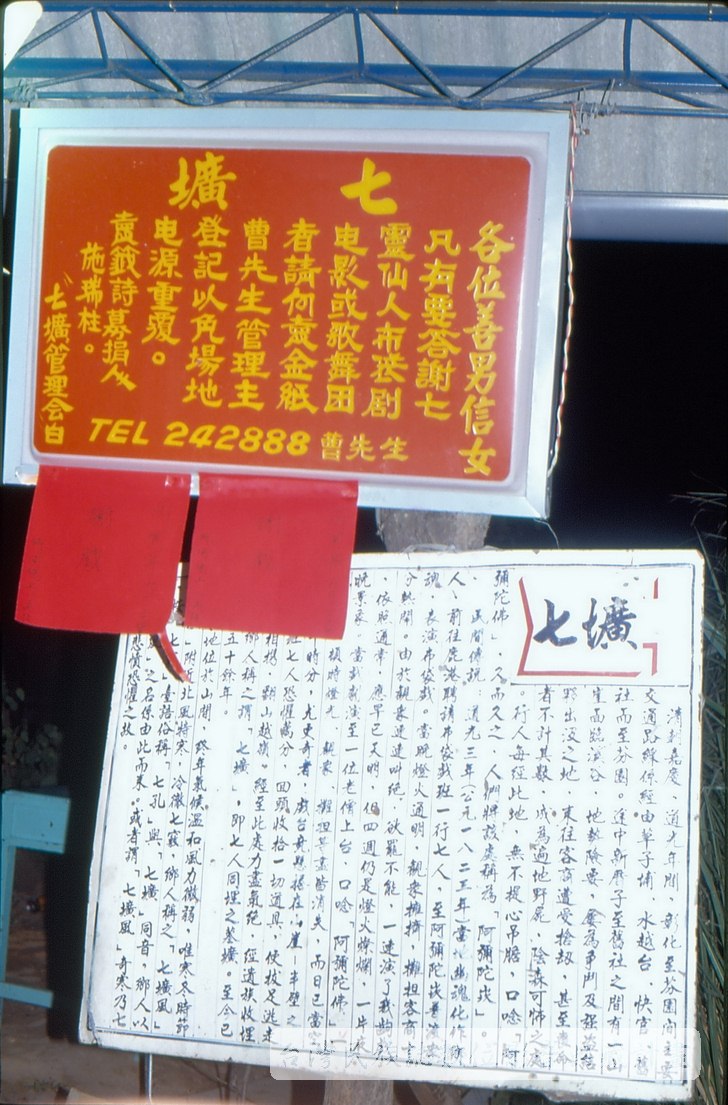 七壙
各位善男信女
凡有要答謝七
靈仙人布袋剧
电影或歌舞团
者請向賣金紙
曹先生管理主
登記以免場地
电源重覆。
賣籤詩募捐人
施瑞柱。
七壙管理会白
TEL 242888 曹先生
七壙
清朝嘉慶、道光年間,彰化至芬園向主要
交通路線係經由草子埔、水越台、快官、舊
社而至芬園。途中新厝子至舊社之間有一山
崖高臨深谷、地勢險要,屢為爭鬥及強盜結
夥出沒之地,東往客商遭受搶劫,甚至喪命
者不計其數,成為遍地野屍,陰森可怖之處
。行人每經此地,無不提心吊膽,口唸「阿
彌陀佛」,久而久之,人們將該處稱為「阿彌陀崁」。
民間傳說:道光三年(公元一八二三年)當地幽魂化作
人、前往鹿港聘請布袋戲班一行七人,至阿彌陀崁
魂、表演布袋戲。當晚燈火通明,觀眾擁擠,攤担客商
分熱鬧。由於觀眾連連叫絕,欲罷不能,一連演了
、依照通常,應早已天明,但四週仍是燈火燦爛,一片
晚景象。當戲戲演至一位老僧上台,口唸「阿彌陀佛」
頓時燈光、觀眾、攤担其盡皆消失,而日已當空
時分,尤更奇者,戲台奇懸搭在山崖一半壁之
七人恐懼萬分,回頭收拾一切道具,使拔足逃走
相携,翻山越嶺。經至此處力盡氣絕,經遺族收埋
鄉人稱之謂「七壙」,即七人同埋之墓壙。至今已
五十餘年。
地位於山間,終年氣候溫和風力微弱,唯寒冬時節
附近北風特寒,冷徹七竅,鄉人稱之「七壙風」
臺語俗稱,「七孔」與「七壙」同音,鄉人以
」之名係由此而來。或者謂「七壙風」奇寒乃七
悲憤恐懼之故。